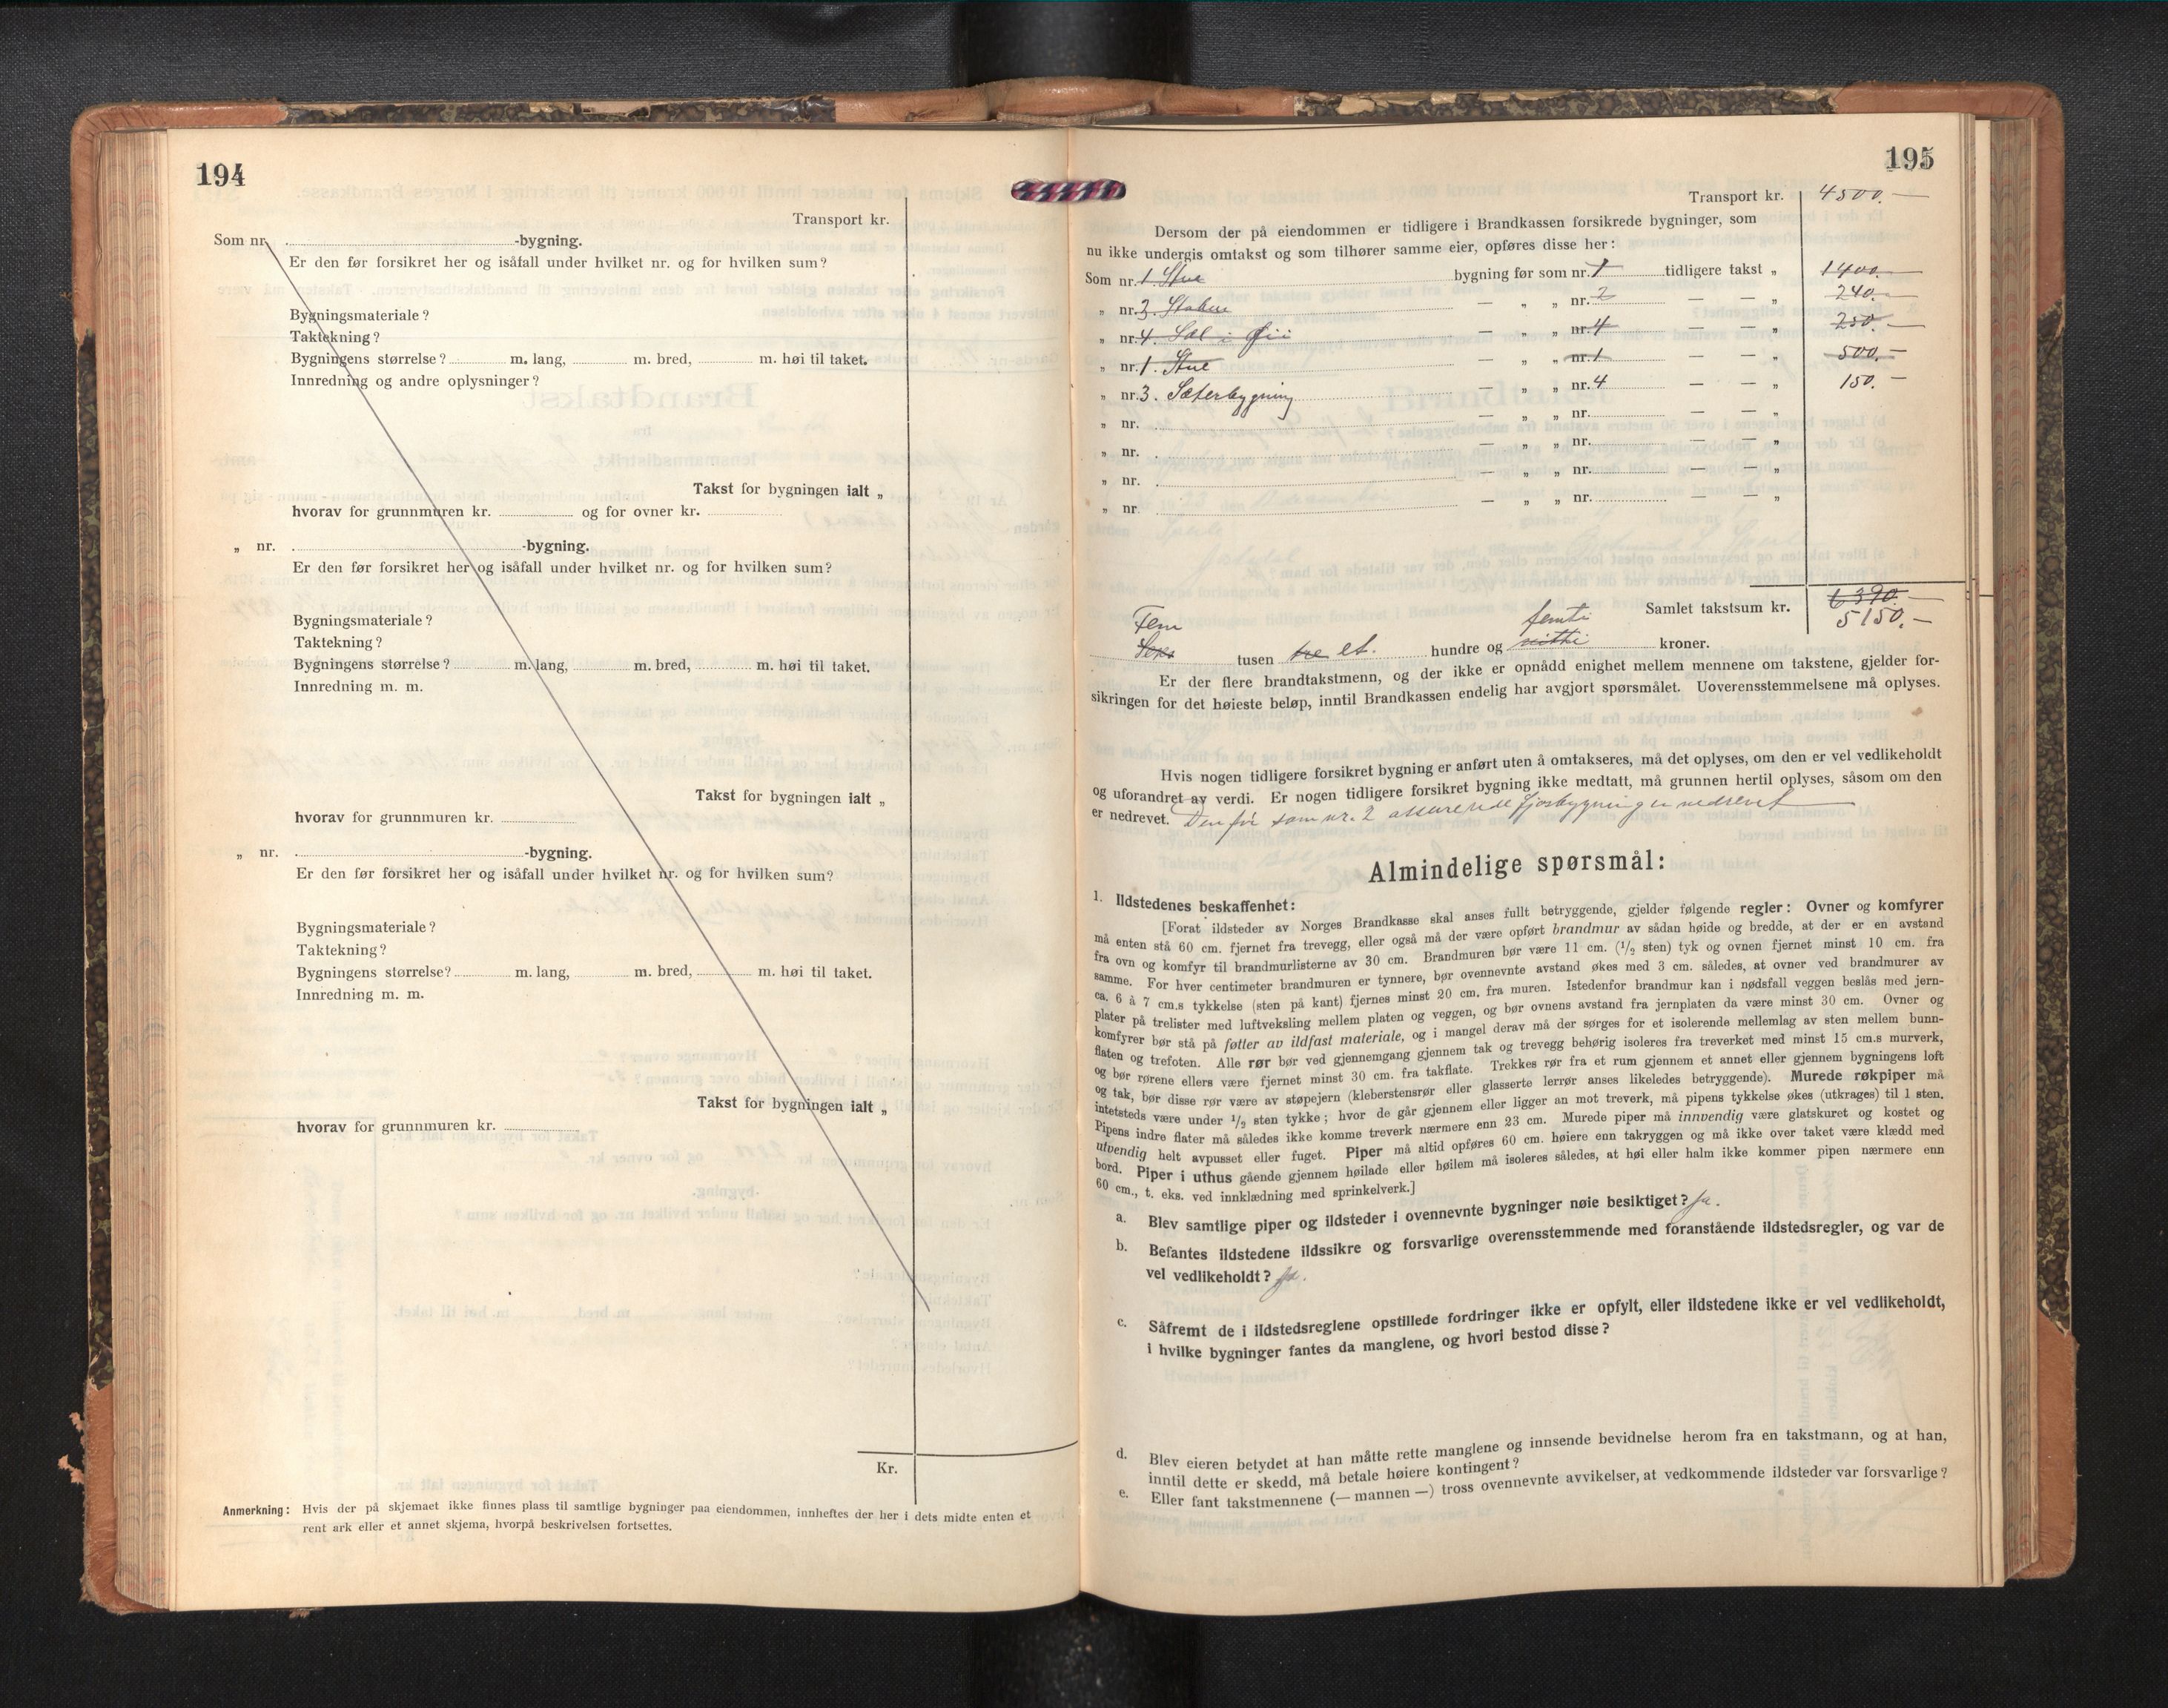 194
Transport kr.
Som nr. -bygning.
Er den før forsikret her og isåfall under hvilket nr. og for hvilken sum?
Bygningsmateriale?
Taktekning?
Bygningens størrelse? m. lang, m. bred, m. høi til taket.
Innredning og andre oplysninger?
Takst for bygningen ialt „
hvorav for grunnmuren kr. og for ovner kr.
„ nr. -bygning.
Er den før forsikret her og isåfall under hvilket nr. og for hvilken sum?
Bygningsmateriale?
Taktekning?
Bygningens størrelse? m. lang, m. bred, m. høi til taket.
Innredning m. m.
Takst for bygningen ialt „
hvorav for grunnmuren kr.
„ nr. -bygning.
Er den før forsikret her og isåfall under hvilket nr. og for hvilken sum?
Bygningsmateriale?
Taktekning?
Bygningens størrelse? m. lang, m. bred, m. høi til taket.
Innredning m. m.
Takst for bygningen ialt „
hvorav for grunnmuren kr.
Kr.
Anmerkning: Hvis der på skjemaet ikke finnes plass til samtlige bygninger paa eiendommen, innheftes der her i dets midte enten et
rent ark eller et annet skjema, hvorpå beskrivelsen fortsettes.
195
Transport kr. 4500.—
Dersom der på eiendommen er tidligere i Brandkassen forsikrede bygninger, som
nu ikke undergis omtakst og som tilhører samme eier, opføres disse her:
Som nr. 1. Stue bygning før som nr. 1 tidligere takst „ 1400.—
„ nr. 3. Stabur — „ „ nr. 2 — — „ 240.—
„ nr. 4. Sæl i Øii — „ „ nr. 4 — — „ 250.—
„ nr. 1. Stue — „ „ nr. 1 — — „ 500.—
„ nr. 3. Sæterbygning — „ „ nr. 4 — — „ 150.—
„ nr. — „ „ nr. — — „
„ nr. — „ „ nr. — — „
„ nr. — „ „ nr. — — „
„ nr. — „ „ nr. — — „
Samlet takstsum kr. 6390.—
5150.—
Fem femti
Seks tusen tre et. hundre og nitti kroner.
Er der flere brandtakstmenn, og der ikke er opnådd enighet mellem mennene om takstene, gjelder for-
sikringen for det høieste beløp, inntil Brandkassen endelig har avgjort spørsmålet. Uoverensstemmelsene må oplyses.
Hvis nogen tidligere forsikret bygning er anført uten å omtakseres, må det oplyses, om den er vel vedlikeholdt
og uforandret av verdi. Er nogen tidligere forsikret bygning ikke medtatt, må grunnen hertil oplyses, såsom om den
er nedrevet. Den før som nr. 2 assurerede fjøsbygning er nedrevet
Almindelige spørsmål:
1. Ildstedenes beskaffenhet:
[Forat ildsteder av Norges Brandkasse skal anses fullt betryggende, gjelder følgende regler: Ovner og komfyrer
må enten stå 60 cm. fjernet fra trevegg, eller også må der være opført brandmur av sådan høide og bredde, at der er en avstand
fra ovn og komfyr til brandmurlisterne av 30 cm. Brandmuren bør være 11 cm. (1/2 sten) tyk og ovnen fjernet minst 10 cm. fra
samme. For hver centimeter brandmuren er tynnere, bør ovennevnte avstand økes med 3 cm. således, at ovner ved brandmurer av
ca. 6 à 7 cm.s tykkelse (sten på kant) fjernes minst 20 cm. fra muren. Istedenfor brandmur kan i nødsfall veggen beslås med jern-
plater på trelister med luftveksling mellem platen og veggen, og bør ovnens avstand fra jernplaten da være minst 30 cm. Ovner og
komfyrer bør stå på føtter av ildfast materiale, og i mangel derav må der sørges for et isolerende mellemlag av sten mellem bunn-
flaten og trefoten. Alle rør bør ved gjennemgang gjennem tak og trevegg behørig isoleres fra treverket med minst 15 cm.s murverk,
og bør rørene ellers være fjernet minst 30 cm. fra takflate. Trekkes rør fra et rum gjennem et annet eller gjennem bygningens loft
og tak, bør disse rør være av støpejern (kleberstensrør eller glasserte lerrør anses likeledes betryggende). Murede røkpiper må
intetsteds være under 1/2 sten tykke; hvor de går gjennem eller ligger an mot treverk, må pipens tykkelse økes (utkrages) til 1 sten.
Pipens indre flater må således ikke komme treverk nærmere enn 23 cm. Murede piper må innvendig være glatskuret og kostet og
utvendig helt avpusset eller fuget. Piper må altid opføres 60 cm. høiere enn takryggen og må ikke over taket være klædd med
bord. Piper i uthus gående gjennem høilade eller bøilem må isoleres således, at høi eller halm ikke kommer pipen nærmere enn
60 cm., t. eks. ved innklædning med sprinkelverk.]
a. Blev samtlige piper og ildsteder i ovennevnte bygninger nøie besiktiget? ja.
b. Befantes ildstedene ildssikre og forsvarlige overensstemmende med foranstående ildstedsregler, og var de
vel vedlikeholdt? ja.
c. Såfremt de i ildstedsreglene opstillede fordringer ikke er opfylt, eller ildstedene ikke er vel vedlikeholdt,
i hvilke bygninger fantes da manglene, og hvori bestod disse?
d. Blev eieren betydet at han måtte rette manglene og innsende bevidnelse herom fra en takstmann, og at han,
inntil dette er skedd, må betale høiere kontingent?
e. Eller fant takstmennene (— mannen —) tross ovennevnte avvikelser, at vedkommende ildsteder var forsvarlige?